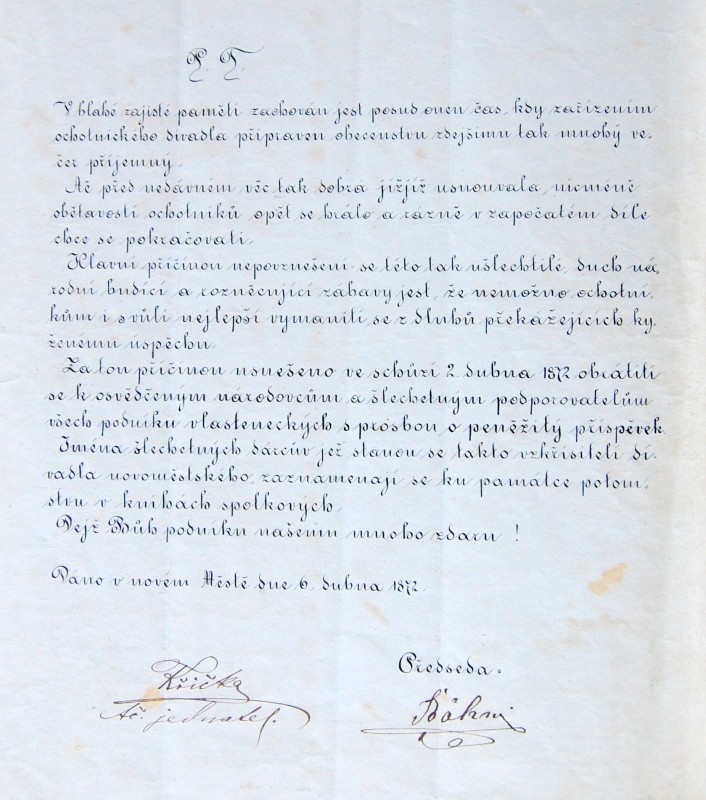 P. T.
V blahé zajisté paměti zachován jest posud onen čas, kdy zařízením
ochotnického divadla připraven obecenstvu zdejšímu tak mnohý ve-
čer příjemný.
Ač před nedávném věc tak dobrá jižjiž usnouvala, nicméně
obětavostí ochotníků opět se hrálo a rázně v započatém díle
chce se pokračovati.
Hlavní příčinou nepovznešení se této tak ušlechtilé, duch ná-
rodní budící a rozněcující zábavy jest, že nemožno ochotní-
kům i s vůlí nejlepší vymaniti se z dluhů překážejících ky-
ženému úspěchu.
Za tou příčinou usnešeno ve schůzi 2. dubna 1872 obrátiti
se k osvědčeným národovcům a šlechetným podporovatelům
všech podniků vlasteneckých s prosbou o peněžitý příspěvek.
Jména šlechetných dárcův jež stanou se takto vzkřisiteli di-
vadla novoměstského, zaznamenají se ku památce potom-
stvu v knihách spolkových.
Dejž Bůh podniku našemu mnoho zdaru!
Dáno v novém Městě dne 6. dubna 1872.
Předseda.
Křička
jednatel.
Böhm